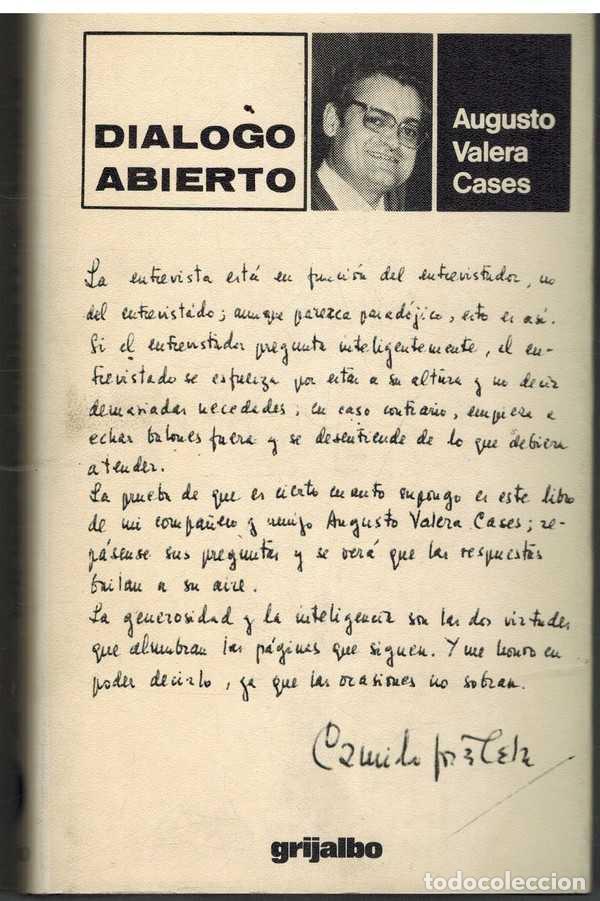 DIALOGO
ABIERTO
Augusto
Valera
Cases
La entrevista está en función del entrevistador, no
del entrevistado; aunque parezca paradójico, esto es así.
Si el entrevistador pregunta inteligentemente, el en-
trevistado se esfuerza por estar a su altura y no decir
demasiadas necedades; en caso contrario, empieza a
echar balones fuera y se desentiende de lo que debiera
atender.
La prueba de que es cierto cuanto supongo es este libro
de mi compañero y amigo Augusto Valera Cases; re-
pásense sus preguntas y se verá que las respuestas
bailan a su aire.
La generosidad y la inteligencia son las dos virtudes
que alumbran las páginas que siguen. Y me honro en
poder decirlo, ya que las ocasiones no sobran.
Camilo José Cela
grijalbo
todocoleccion